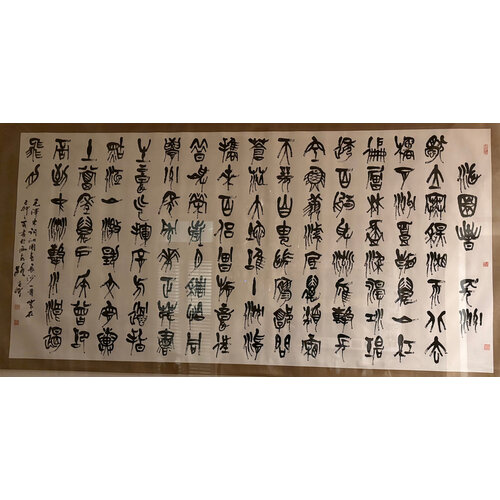 沁園春 長沙
獨立寒秋湘江北去
橘子洲頭看萬山紅
遍層林盡染漫江碧
透百舸爭流鷹擊長
空魚翔淺底萬類霜
天競自由悵寥廓問
蒼茫大地誰主沉浮
攜來百侶曾遊憶往
昔崢嶸歲月稠恰同
學少年風華正茂書
生意氣揮斥方遒指
點江山激揚文字糞
土當年萬戶侯曾記
否到中流擊水浪遏
飛舟
毛澤東詞沁園春長沙一首